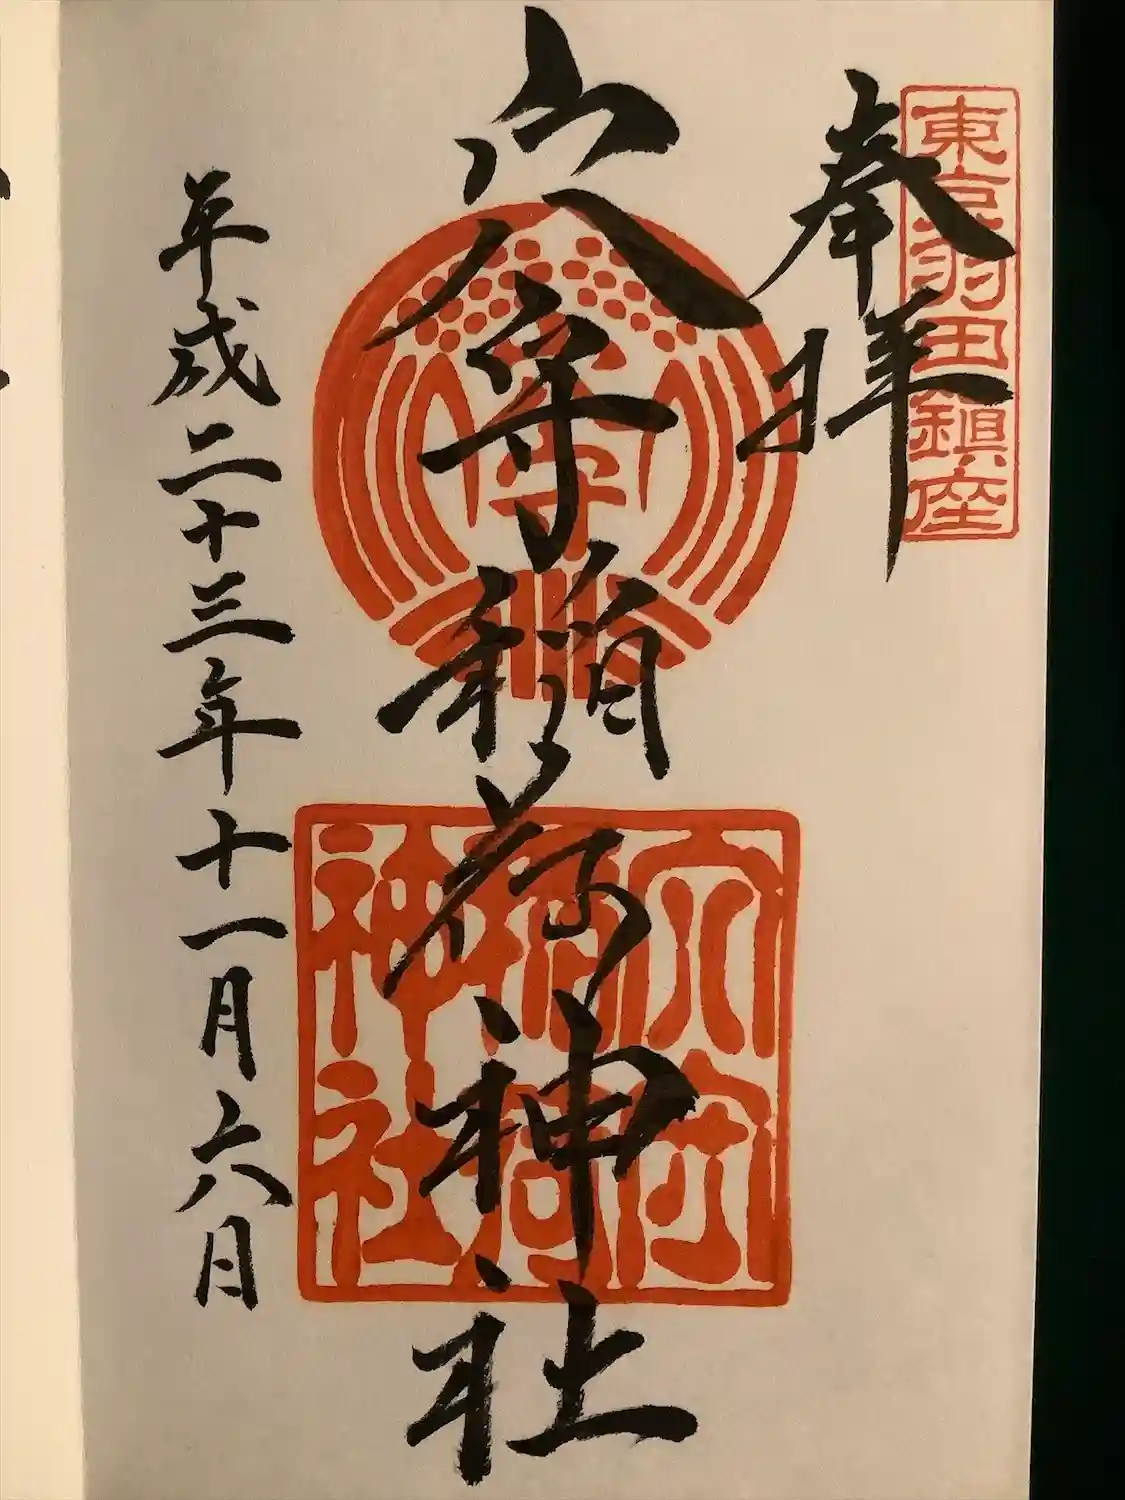 東京羽田鎮座
奉拝
穴守稲荷神社
守
穴守
稲荷
神社
平成二十三年十一月六日